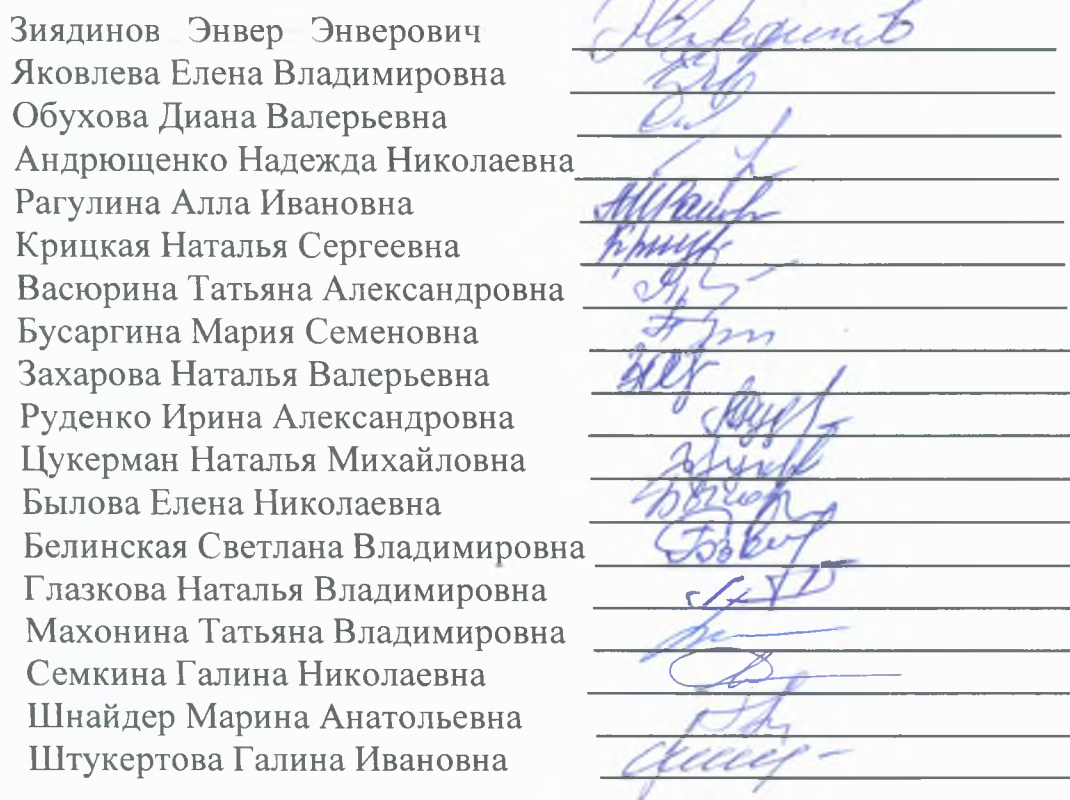 Зиядинов Энвер Энверович
Яковлева Елена Владимировна
Обухова Диана Валерьевна
Андрющенко Надежда Николаевна
Рагулина Алла Ивановна
Крицкая Наталья Сергеевна
Васюрина Татьяна Александровна
Бусаргина Мария Семеновна
Захарова Наталья Валерьевна
Руденко Ирина Александровна
Цукерман Наталья Михайловна
Былова Елена Николаевна
Белинская Светлана Владимировна
Глазкова Наталья Владимировна
Махонина Татьяна Владимировна
Семкина Галина Николаевна
Шнайдер Марина Анатольевна
Штукертова Галина Ивановна